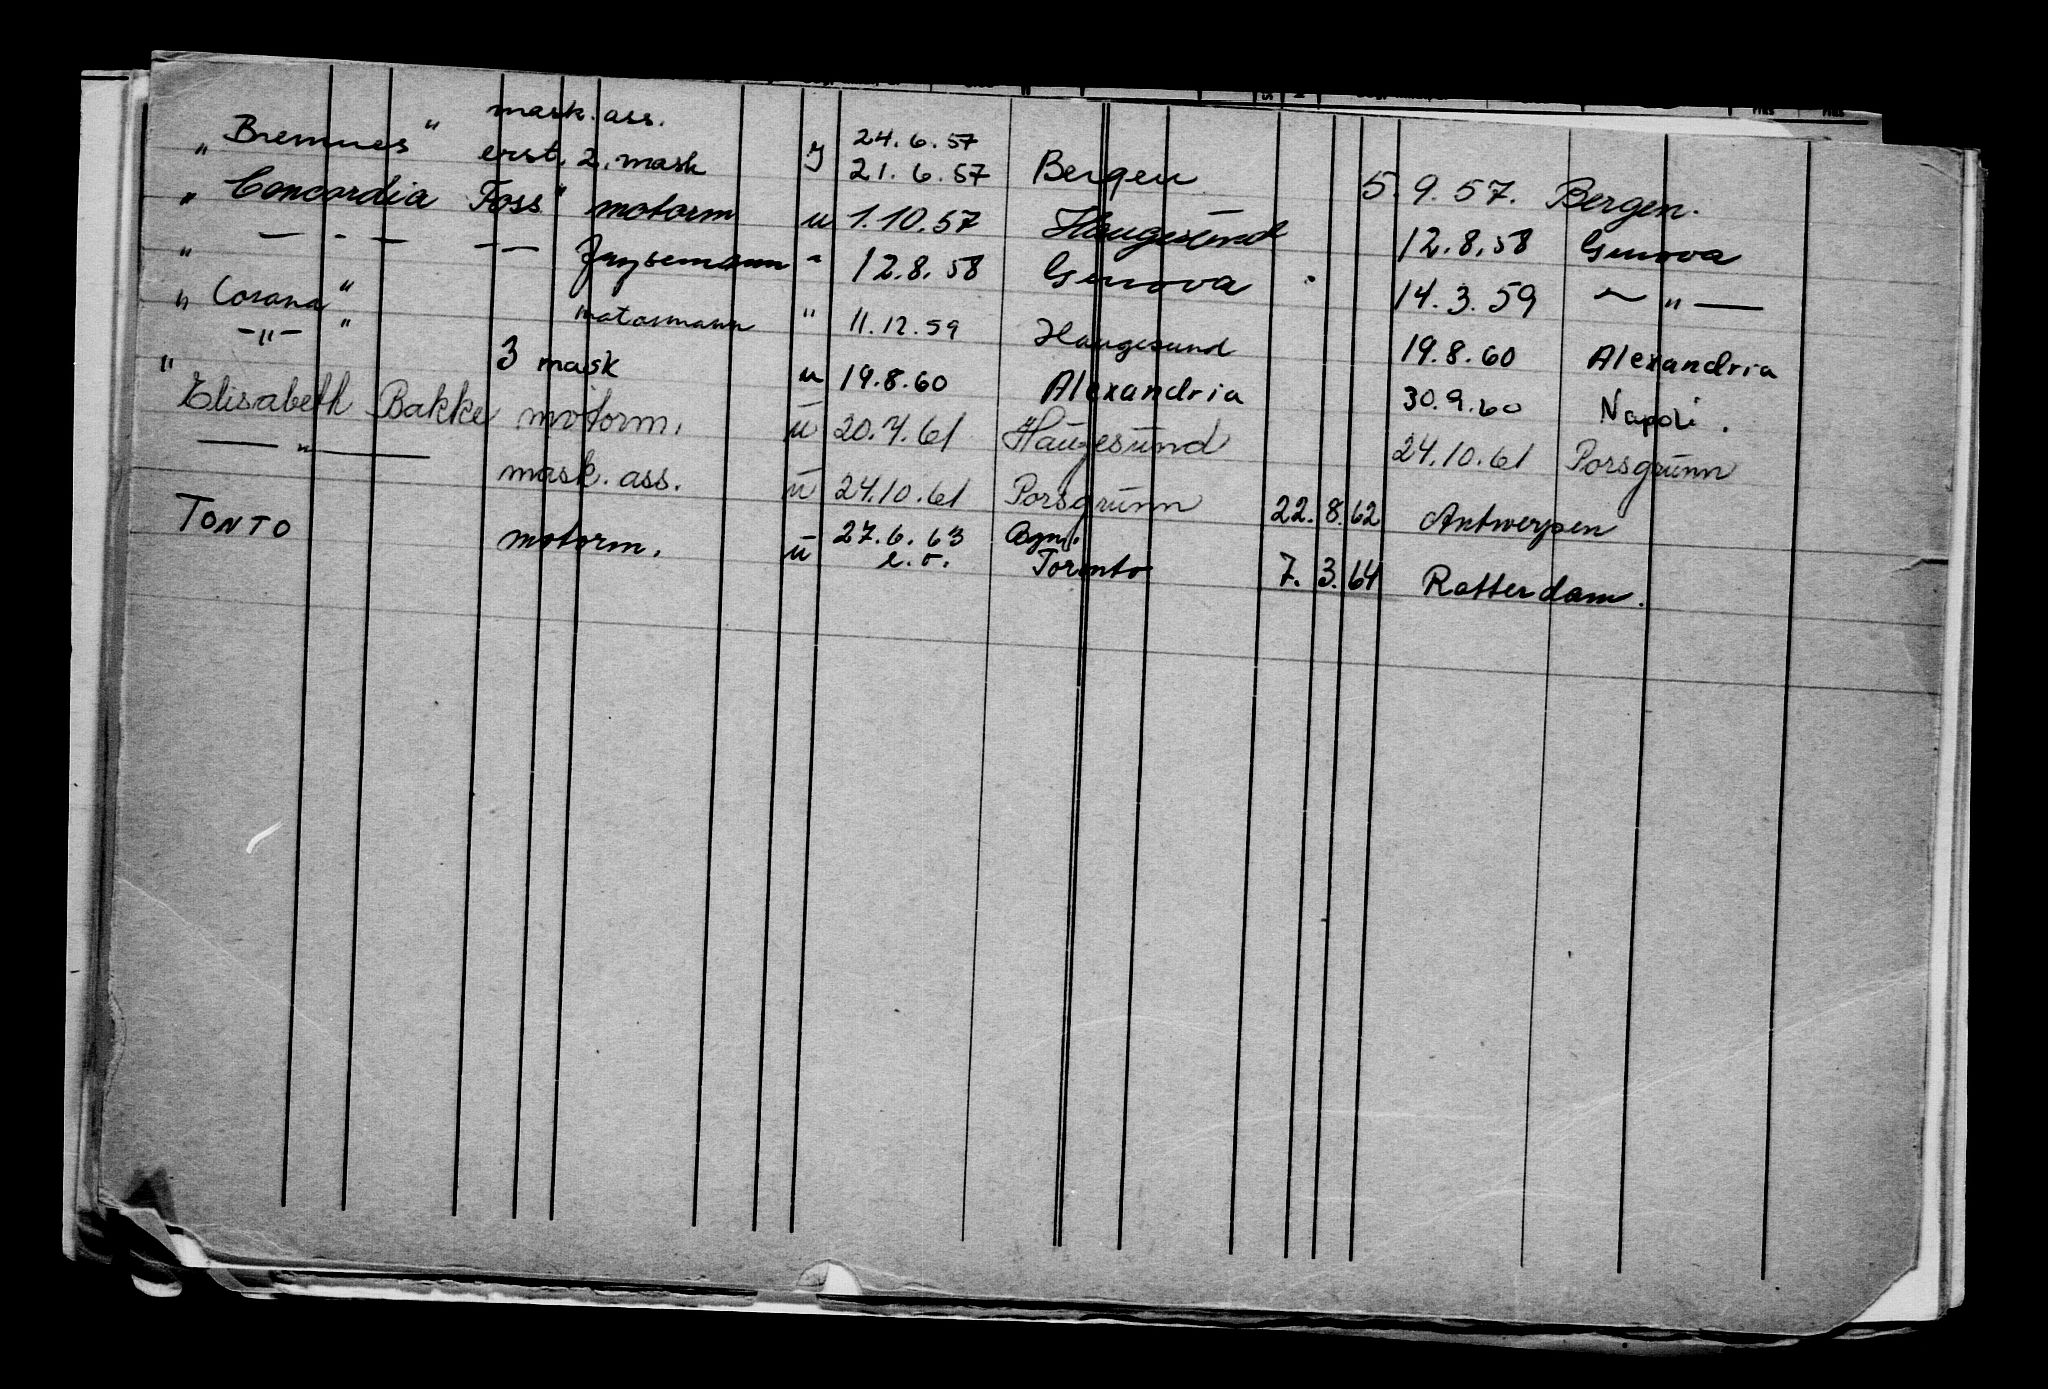 mask. ass.
„Bremnes" erst. 2. mask 24.6.57 21.6.57 Bergen 5.9.57. Bergen.
„Concordia Foss" motorm u 1.10.57 Haugesund 12.8.58 Genova
„ — - — — — Frysemann " 12.8.58 Genova 14.3.59 — „ —
„Corana" motormann " 11.12.59 Haugesund 19.8.60 Alexandria
" -"- " 3 mask u 19.8.60 Alexandria 30.9.60 Napoli.
Elisabeth Bakke motorm. u 20.4.61 Haugesund 24.10.61 Porsgrunn
— " — mask. ass. u 24.10.61 Porsgrunn 22.8.62 Antwerpen
TONTO motorm. u 27.6.63 e.o. Toronto 7.3.64 Rotterdam.